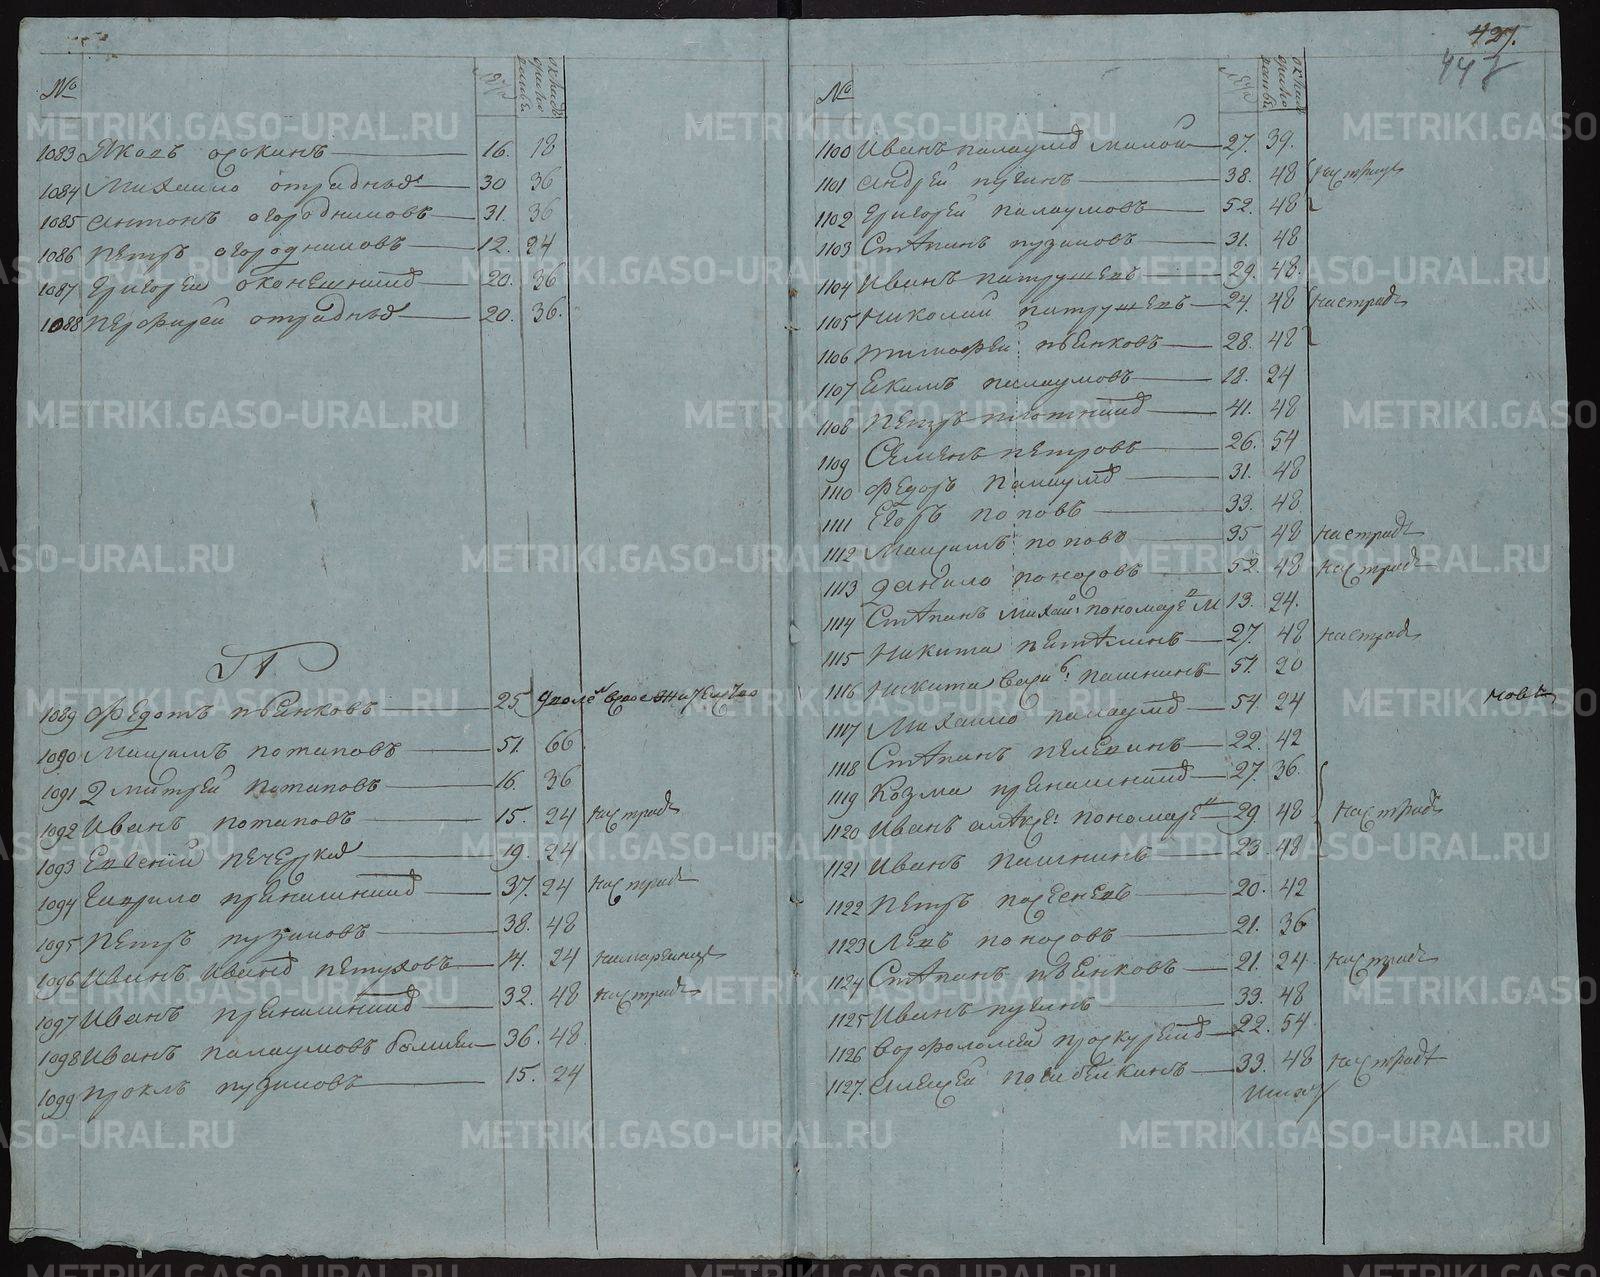 №
1083 Яковъ осокинъ 16. 18
1084 Михаило отрадныхъ 30 36
1085 антонъ огородниковъ 31. 36
1086 петръ огородниковъ 12. 24
1087 Григорей 20. 36
1088 перфирей отрадныхъ 20. 36.
П
1089 Федотъ пьянковъ 25
1090 Максимъ потаповъ 51. 66
1091 Дмитрей потаповъ 16. 36
1092 Иванъ потаповъ 15. 24 на страдѣ
1093 Евгений печерских 19. 24
1094 Гаврило 37. 24 на страдѣ
1095 петръ пузановъ 38. 48
1096 Иванъ Иванов петуховъ 14. 24
1097 Иванъ 32. 48 на страдѣ
1098 Иванъ палаумовъ 36. 48
1099 проклъ пузановъ 15. 24
427.
447
№
1100 Иванъ палаумов малой 27. 39.
1101 андрей пугинъ 38. 48 на страдѣ
1102 Григорей палаумовъ 52. 48
1103 Степанъ пузановъ 31. 48
1104 Иванъ патрушевъ 29. 48.
1105 Николай патрушевъ 24. 48 на страдѣ
1106 тимофей пьянковъ 28. 48
1107 Екимъ палаумовъ 18. 24
1108 петръ плотников 41. 48
1109 Семенъ петровъ 26. 54
1110 Федоръ палаумов 31. 48
1111 Егоръ поповъ 33. 48
1112 Максимъ поповъ 35 48 на страдѣ
1113 данило поносовъ 52. 48 на страдѣ
1114 Степанъ Михай: пономарев М 13. 24.
1115 Никита петелинъ 27. 48 на страдѣ
1116 Никита пашнинъ 51. 20
мовъ
1117 Михаило палаумов 54 24
1118 Степанъ пелевинъ 22. 42
1119 Козма 27. 36
1120 Иванъ алексе: пономарев 29. 48 на страдѣ
1121 Иванъ пашнинъ 23. 48
1122 петръ 20. 42
1123 Левъ поносовъ 21. 36
1124 Степанъ пьянковъ 21. 24 на страдѣ
1125 Иванъ пугинъ 33. 48
1126 Ворфоломей 22. 54
1127. алексей погибелкинъ 33. 48 на страдѣ